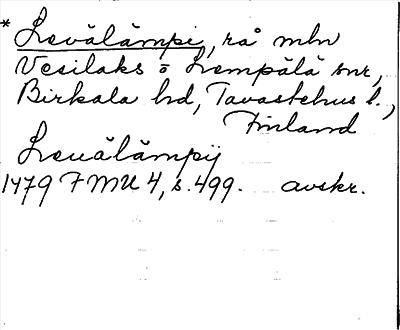 * Levälämpi, rå mln
Vesilaks o Lempälä snr,
Birkala hd, Tavastehus l.,
Finland
Leuälämpij
1479 FMU 4, s. 499. avskr.